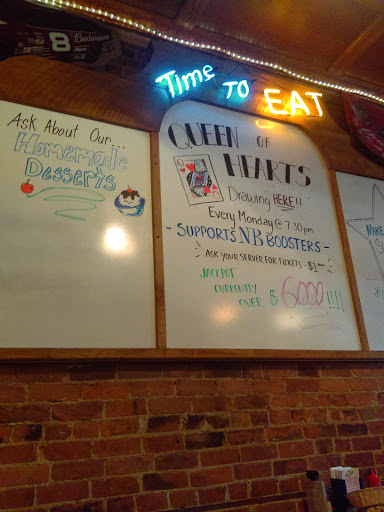 8
Budweiser
TIME TO EAT
Ask About Our...
Homemade
Desserts
QUEEN OF
HEARTS
Drawing HERE!!
Every Monday @ 7:30pm
- SUPPORTS NB BOOSTERS -
ASK YOUR SERVER FOR TICKETS - $1
JACKPOT
CURRENTLY
OVER $6000!!!!
MAKE